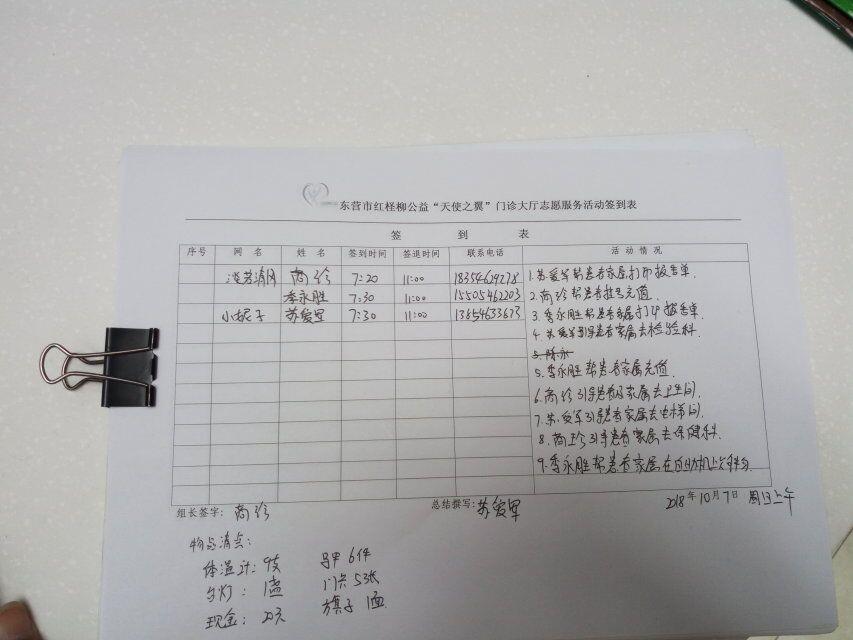 东营市红柽柳公益“天使之翼”门诊大厅志愿服务活动签到表
签 到 表
序号 网 名 姓 名 签到时间 签退时间 联系电话 活 动 情 况
淡若清风 商珍 7:20 11:00 18354619278
李永胜 7:30 11:00 15505462203
小妮子 苏爱军 7:30 11:00 13854633673
1.苏爱军帮患者家属打印报告单.
2.商珍帮患者挂号充值.
3.李永胜帮患者家属打印报告单.
4.苏爱军引导患者家属去检验科.
5.李永胜帮患者家属充值.
6.商珍引导患者及家属去卫生间.
7.苏爱军引导患者家属去电梯间.
8.商珍引导患者家属去保健科.
9.李永胜帮患者家属在自助机上
组长签字: 商珍 总结撰写: 苏爱军 2018年10月7日 周日上午
物品清点:
体温计: 9支 马甲 6件
灯: 1盏 53张
现金: 20元 旗子 1面